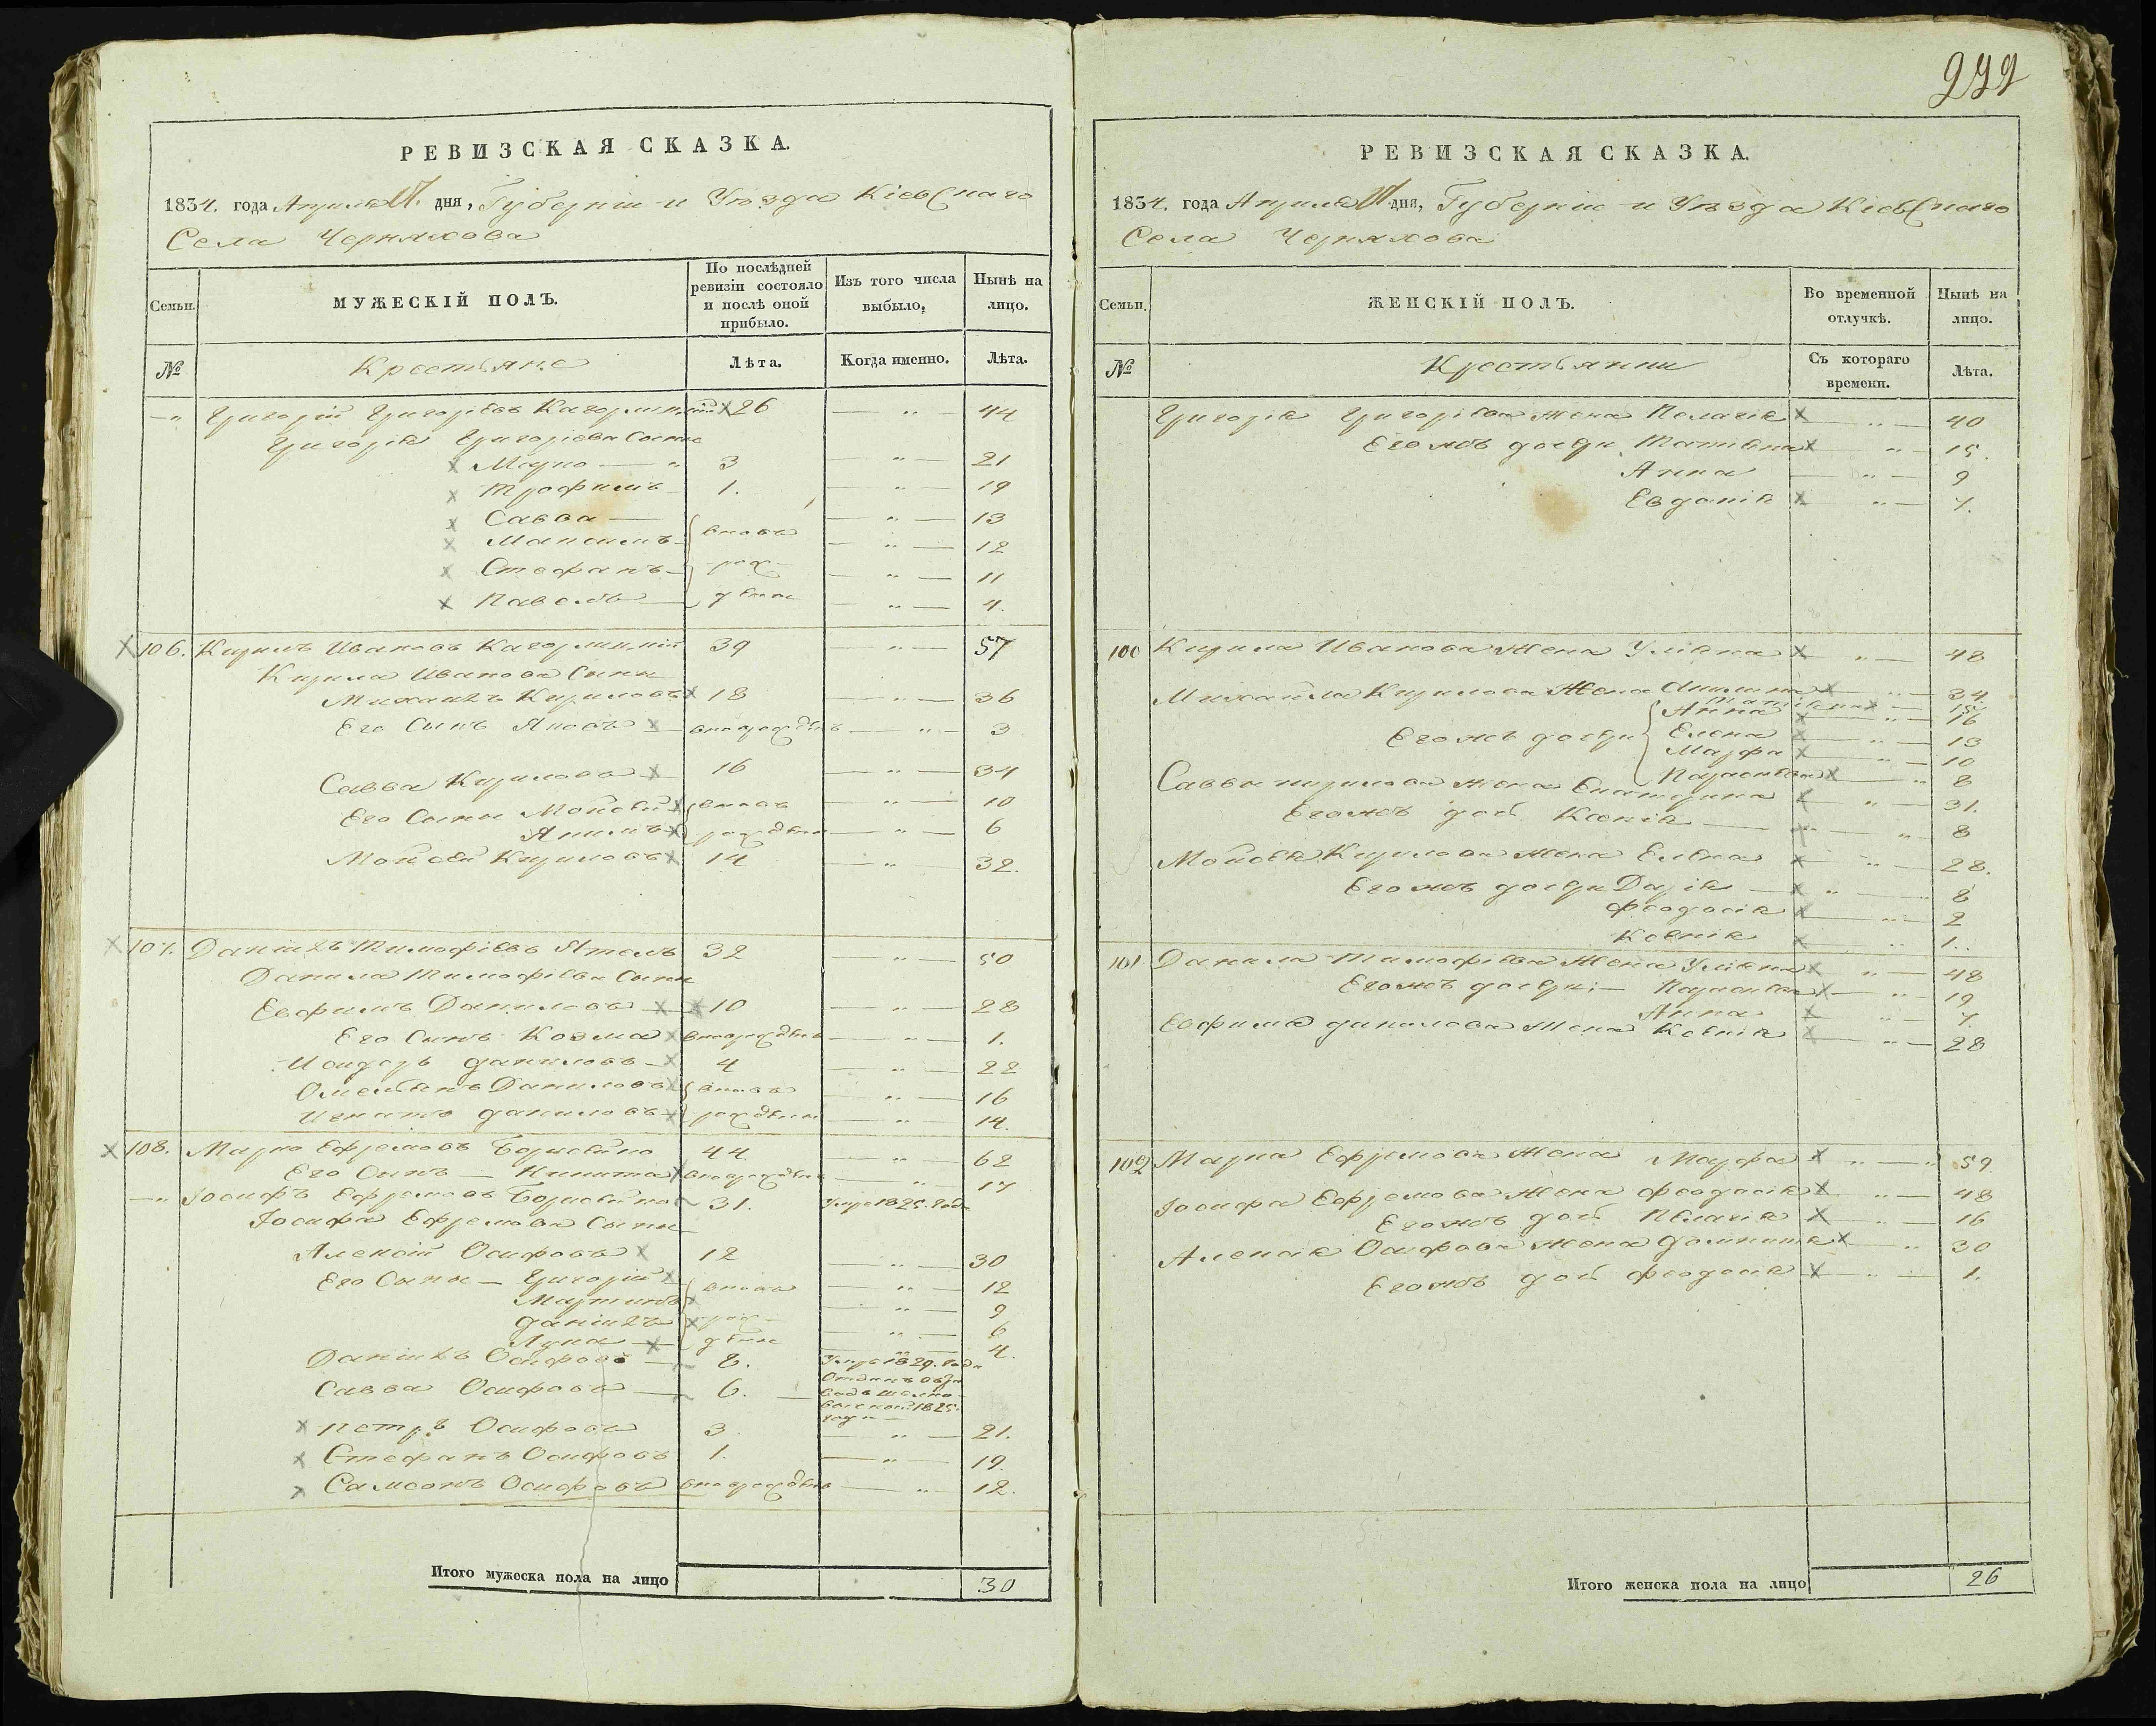 РЕВИЗСКАЯ СКАЗКА.
1834. года Апреля дня, Губерніи и Уѣзда Кіевскаго
Села Черняхова
Семьи.
МУЖЕСКІЙ ПОЛЪ.
По послѣдней ревизіи состояло и послѣ оной прибыло.
Изъ того числа выбыло,
Нынѣ на лицо.
№
Крестьяне
Лѣта.
Когда именно.
Лѣта.
—„ Григорій Григорьевъ X 26 — „ — 44
Григорія Григоріева Сыны
X Марко — „ 3 — „ — 21
X Трофимъ 1. — „ — 19
X Савва — вновь — „ — 13
X Максимъ — „ — 12
X Стефанъ — рож- — „ — 11
X Павелъ — дены — „ — 4.
X 106. Кирилъ Ивановъ 39 — „ — 57
Кирила Иванова Сыны
Михаилъ Кириловъ X 18 — „ — 36
Его Сынъ Яковъ X — вноворожденъ — „ — 3
Савва Кириловъ X 16 — „ — 34
Его Сыны Мойсей X вновь — „ — 10
Якимъ X рождены — „ — 6
Мойсей Кириловъ X 14 — „ 32.
X 107. Даніилъ Тимофіевъ 32 — „ — 50
Данила Тимофіева Сыны
Евфимъ Даниловъ X X 10 — „ — 28
Его Сынъ Козма X вноворожденъ — „ — 1.
Даниловъ — X 4 — „ — 22
Омельянъ Даниловъ X вновь — „ — 16
Даниловъ X рождены — „ — 14.
X 108. Марко Ефремовъ 44 — „ — 62
Его Сынъ — Никита X вноворожденъ — „ — 17
—„ Іосифъ Ефремовъ 31. Умре 1825. года
Іосифа Ефремова Сыны
Алексій Осифовъ X 12 — „ — 30
Его Сыны — Григорій X вновь — „ — 12
Мартинъ X — „ — 9
Даніилъ X рож- — „ — 6
Лука — X дены — „ — 4.
Даніилъ Осифовъ — 8. Умре 1829. года
Савва Осифовъ — 6. — Отданъ 1825. года —
X Петръ Осифовъ 3. — „ — 21.
X Стефанъ Осифовъ 1. — „ — 19.
X Самсонъ Осифовъ вноворожденъ — „ — 12.
Итого мужеска пола на лицо 30
РЕВИЗСКАЯ СКАЗКА.
1834. года Апреля дня, Губерніи и Уѣзда Кіевскаго
Села Черняхова
Семьи.
ЖЕНСКІЙ ПОЛЪ.
Во временной отлучкѣ.
Нынѣ на лицо.
№
Крестьянки
Съ котораго времени.
Лѣта.
Григорія Григоріева жена Пелагія X — „ — 40
Его жъ дочери Татіяна X „ — 15.
Анна — „ — 9
Евдокія X „ — 7.
100 Кирила Иванова жена Уліяна X „ — 48
Михаила Кирилова жена X „ — 34.
Татіяна X — 15
Его жъ дочери Анна X — „ — 16
Елена X — „ — 13
Марфа X — „ — 10
Параскева X — „ 8
Савви Кирилова жена Екатерина X „ — 31.
Его жъ доч. Ксенія — „ — 8
Мойсея Кирилова жена Елена X — „ — 28.
Его жъ дочери Дарія — X „ — 8
Феодосія X — „ — 2
Ксенія X — „ — 1.
101. Данила Тимофіева жена Уліяна X „ — 48
Его жъ дочери: — Параскева X „ — 19
Анна X — „ — 7.
Евфима Данилова жена Ксенія X — „ — 28
102 Марка Ефремова жена Марфа X „ — 59
Іосифа Ефремова жена Феодосія X „ — 48
Его жъ доч. Пелагія X — „ — 16
Алексія Осифова жена Домникія X — „ 30
Его жъ доч. Феодосія X — „ — 1.
Итого женска пола на лицо 26